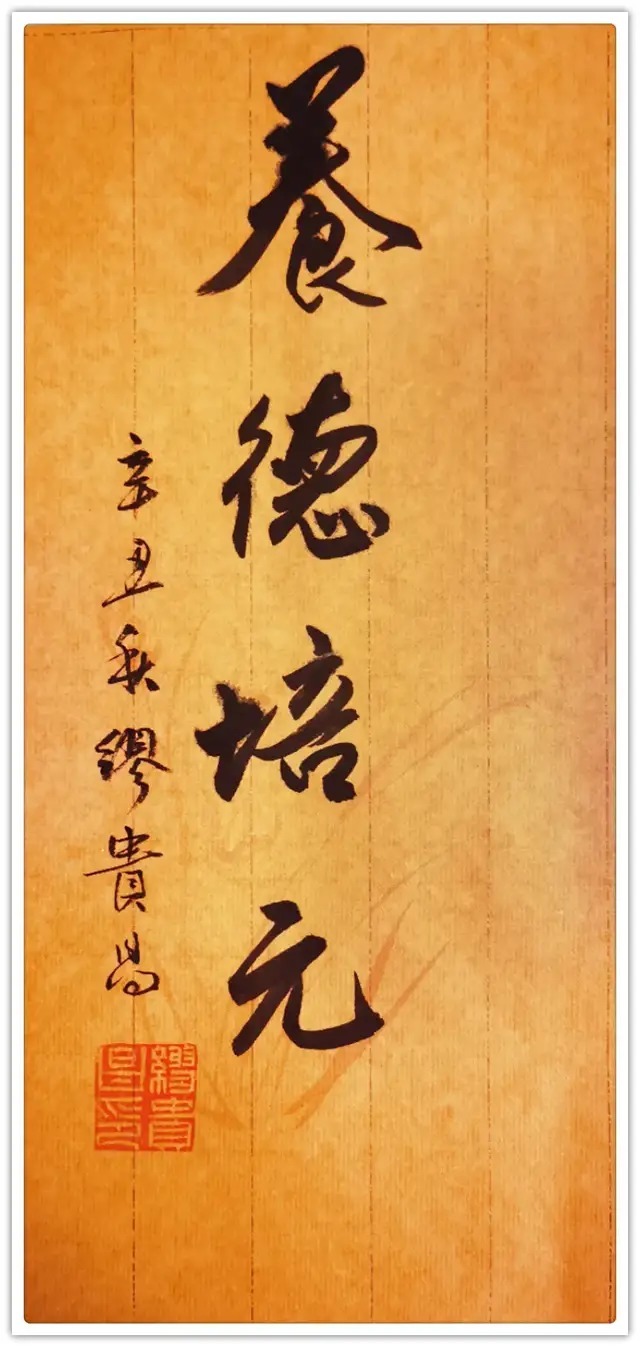 養德培元
辛丑秋繆貴昌
繆貴昌印